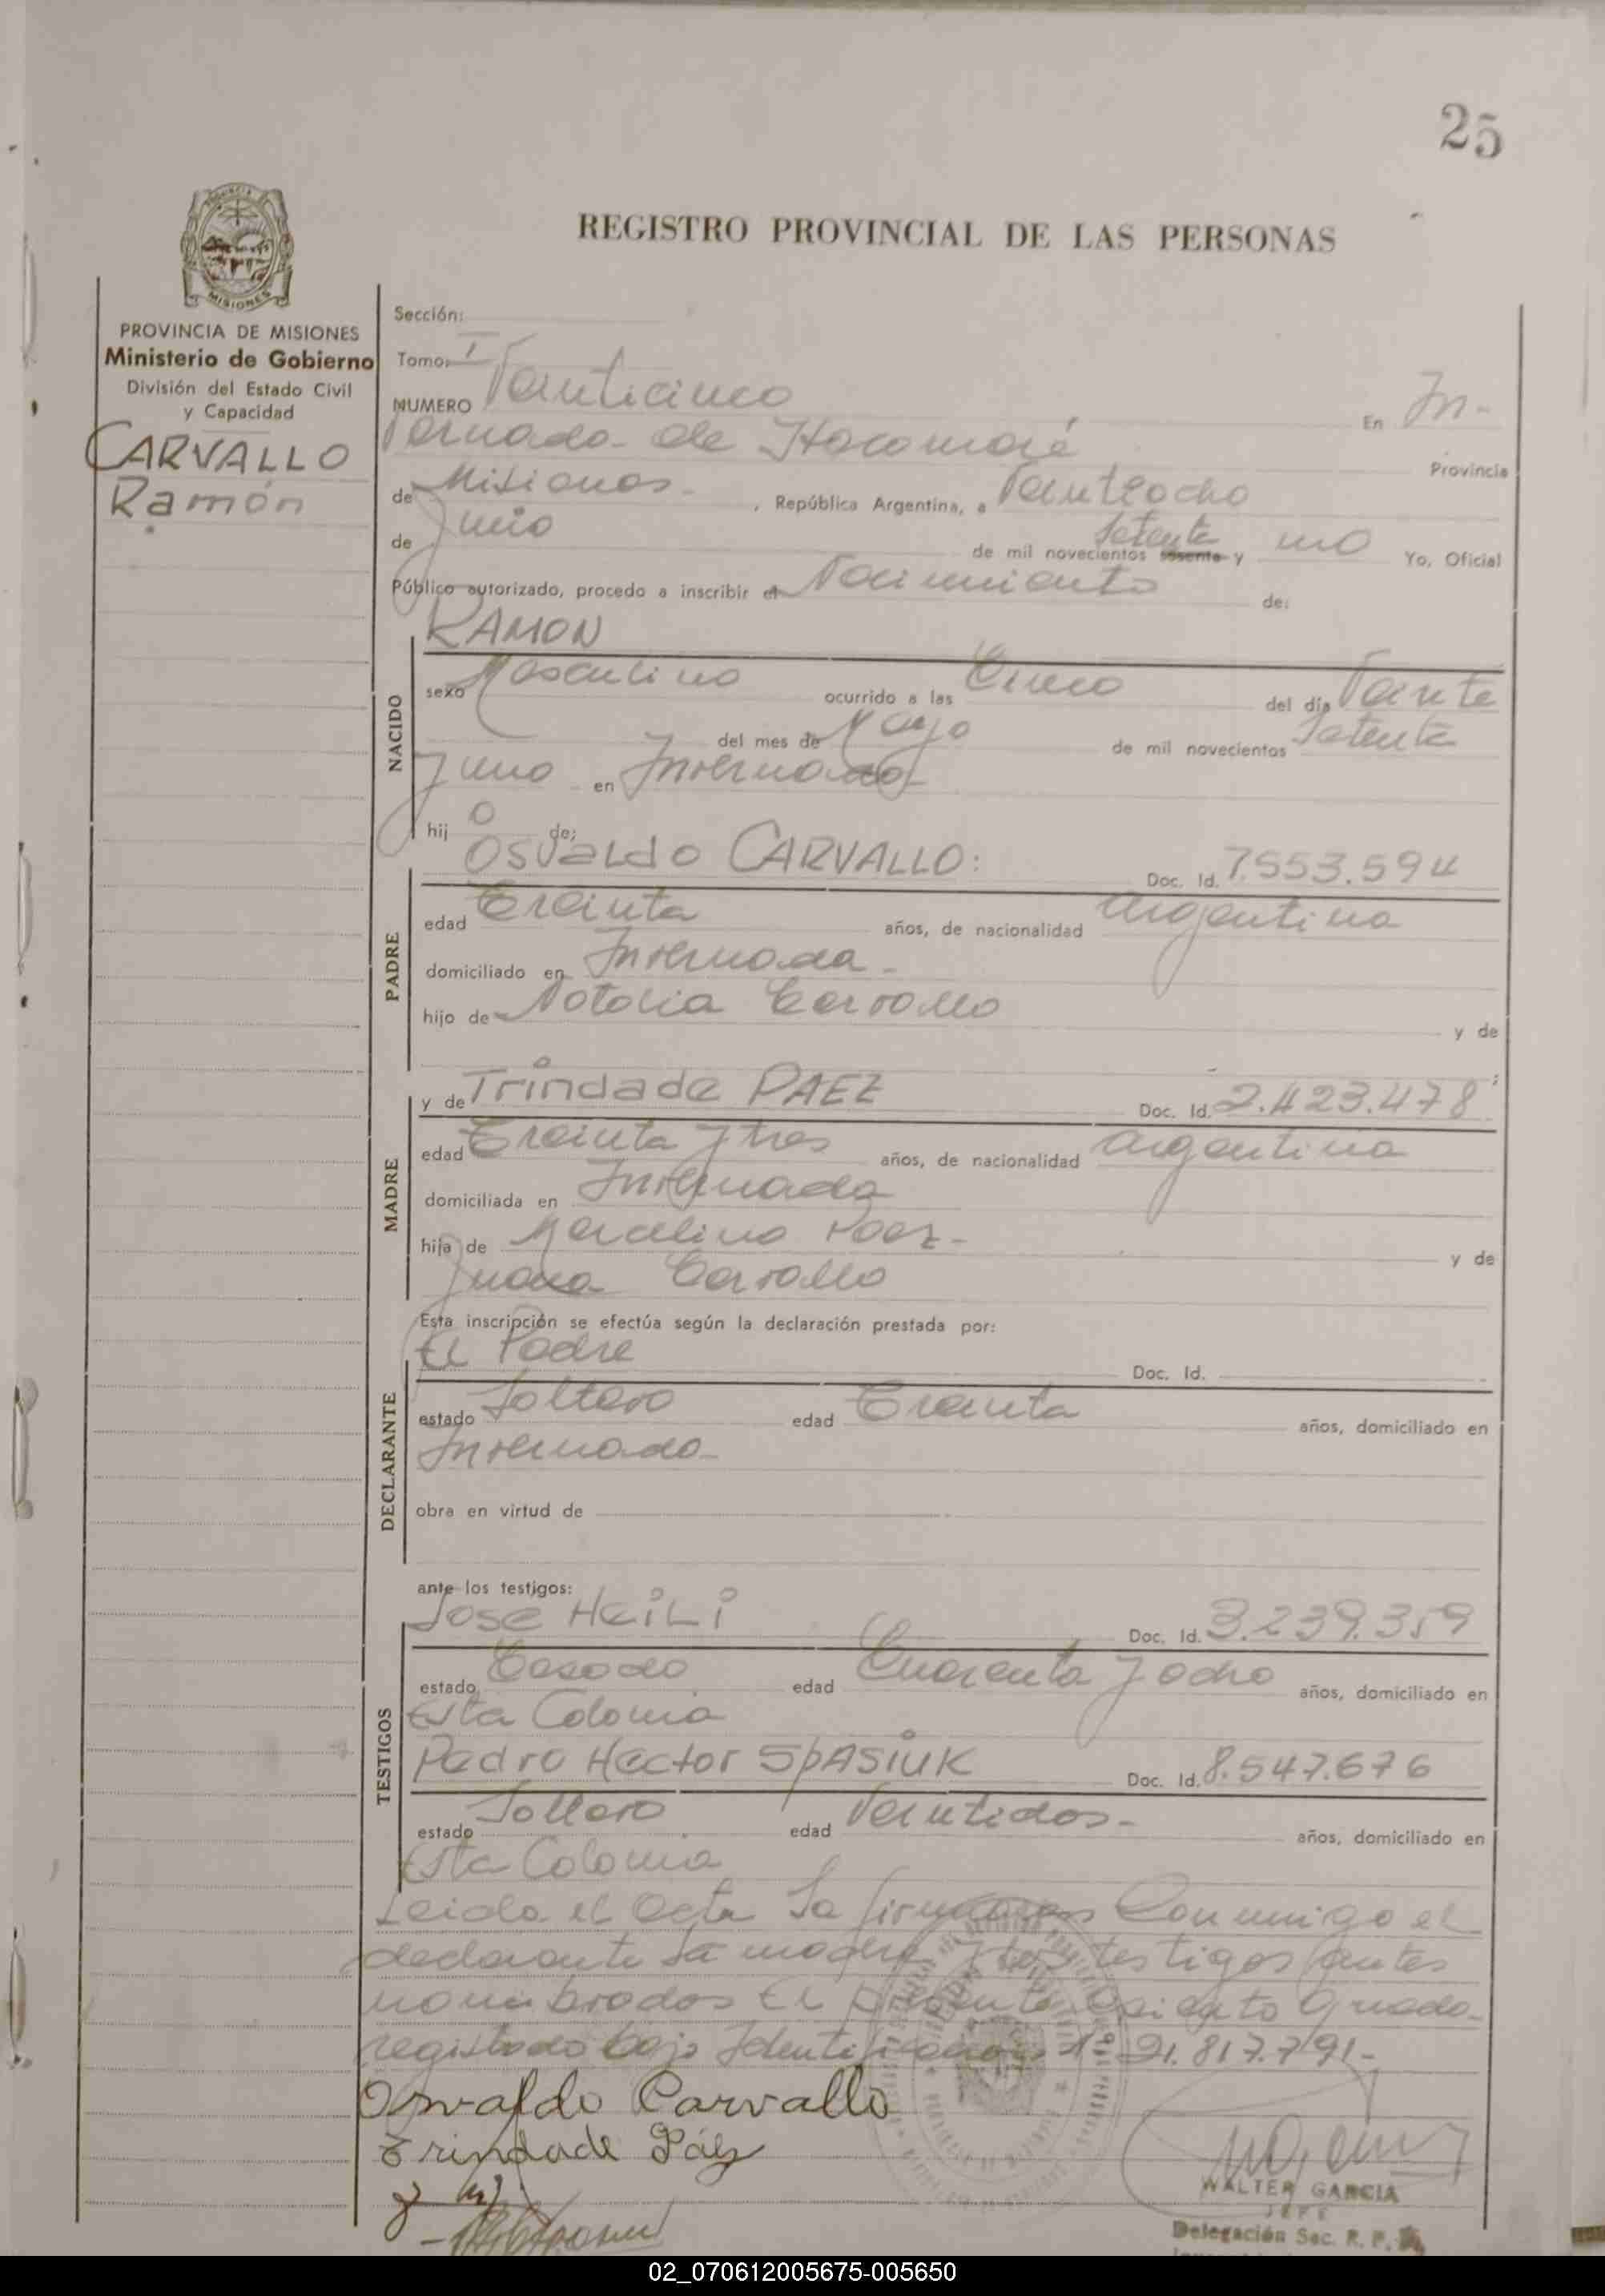 25
REGISTRO PROVINCIAL DE LAS PERSONAS
MISIONES
PROVINCIA DE MISIONES
Ministerio de Gobierno
División del Estado Civil
y Capacidad
CARVALLO
Ramón
Sección:
Tomo: I
NUMERO Veinticinco En In-
vernada de Itacaruaré Provincia
de Misiones , República Argentina, a Veinteocho
de Junio de mil novecientos sesenta y Setenta uno Yo, Oficial
Público autorizado, procedo a inscribir el Nacimiento de:
NACIDO
RAMON
sexo Masculino ocurrido a las Cinco del día Veinte
del mes de Mayo de mil novecientos Setenta
y uno en Invernada
hij o de:
PADRE
Osvaldo CARVALLO: Doc. Id. 7.553.594
edad Treinta años, de nacionalidad Argentina
domiciliado en Invernada
hijo de Natalia Carvallo y de
MADRE
y de Trindade PAEZ Doc. Id. 2.423.478
edad Treinta y tres años, de nacionalidad Argentina
domiciliada en Invernada
hija de Marcelino Paez- y de
Juana Carvallo
Esta inscripción se efectúa según la declaración prestada por:
DECLARANTE
El Padre Doc. Id.
estado Soltero edad Treinta años, domiciliado en
Invernada
obra en virtud de
ante los testigos:
TESTIGOS
Jose HEiLi Doc. Id. 3.239.359
estado Casado edad Cuarenta y ocho años, domiciliado en
Esta Colonia
Pedro Hector SpASiUK Doc. Id. 8.547.676
estado Soltero edad Veintidos- años, domiciliado en
Esta Colonia
Leida el Acta La firman Conmigo el
declarante La madre y los testigos antes
nombrados El presente asiento queda
registrado bajo Identificacion Nº 21.817.791-
Osvaldo Carvallo
Trindade Páez
WALTER GARCIA
JEFE
Delegación Sec. R. P.
02_070612005675-005650